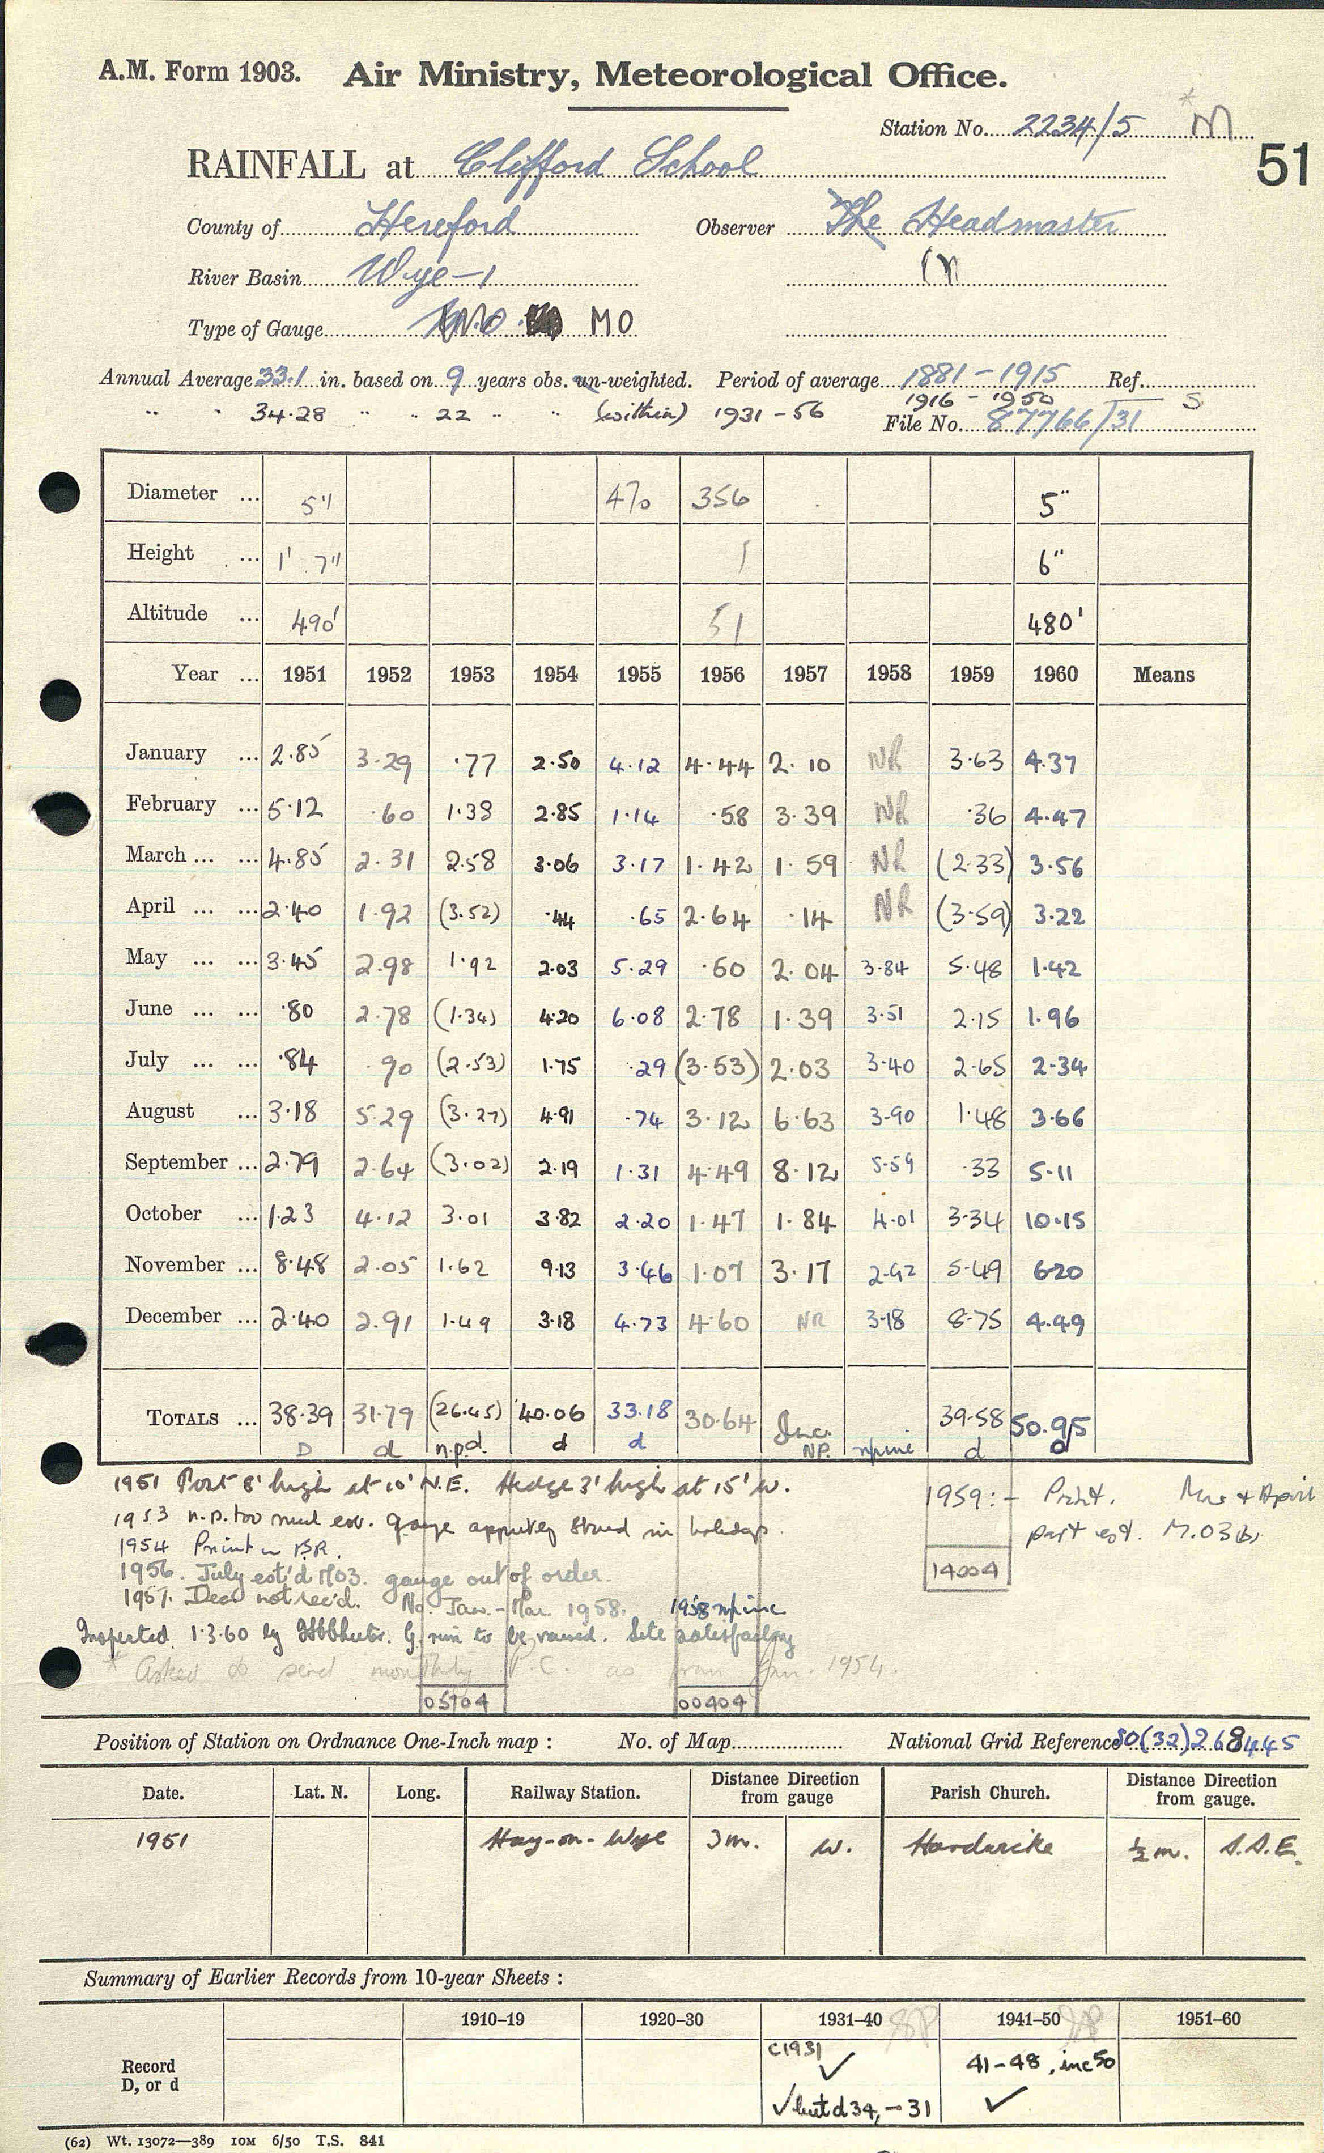 A.M. Form 1903. Air Ministry, Meteorological Office.
Station No. 2234/5 * M
51
RAINFALL at Clifford School
County of Hereford Observer The Headmaster
River Basin Wye-1
Type of Gauge MO
Annual Average 33.1 in. based on 9 years obs. un-weighted. Period of average 1881-1915 Ref.
" " 34.28 " " 22 " " (within) 1931-56 1916-1950 S
File No. 87766/31
Diameter ... 5" 470 356 5"
Height ... 1' 7" 1 6"
Altitude ... 490' 51 480'
Year ... 1951 1952 1953 1954 1955 1956 1957 1958 1959 1960 Means
January ... 2.85 3.29 .77 2.50 4.12 4.44 2.10 NR 3.63 4.37
February ... 5.12 .60 1.38 2.85 1.14 .58 3.39 NR .36 4.47
March ... ... 4.85 2.31 2.58 3.06 3.17 1.42 1.59 NR (2.33) 3.56
April ... ... 2.40 1.92 (3.52) .44 .65 2.64 .14 NR (3.59) 3.22
May ... ... 3.45 2.98 1.92 2.03 5.29 .60 2.04 3.84 5.48 1.42
June ... ... .80 2.78 (1.34) 4.20 6.08 2.78 1.39 3.51 2.15 1.96
July ... ... .84 .90 (2.53) 1.75 .29 (3.53) 2.03 3.40 2.65 2.34
August ... 3.18 5.29 (3.27) 4.91 .74 3.12 6.63 3.90 1.48 3.66
September ... 2.79 2.64 (3.02) 2.19 1.31 4.49 8.12 5.59 .33 5.11
October ... 1.23 4.12 3.01 3.82 2.20 1.47 1.84 4.01 3.34 10.15
November ... 8.48 2.05 1.62 9.13 3.46 1.07 3.17 2.92 5.49 6.20
December ... 2.40 2.91 1.49 3.18 4.73 4.60 NR 3.18 8.75 4.49
TOTALS ... 38.39 31.79 (26.45) 40.06 33.18 30.64 Inc. 39.58 50.95
D d n.p.d. d d NP. npinc d d
1951 Post 8' high at 10' N.E. Hedge 3' high at 15' W.
1959:- Print. Mar & April
1953 n.p. too much est. gauge stored in holidays.
part est. M.03(b)
1954 Print in B.R.
1956. July est'd M03. gauge out of order.
14004
1957. Dec not rec'd. No. Jan.-Mar 1958. 1958 npinc
Inspected 1.3.60 by G. rim to be raised. Site satisfactory
* Asked to send monthly P.C. as from Jan. 1954.
05704 00404
Position of Station on Ordnance One-Inch map : No. of Map National Grid Reference 30(32)268445
Date. Lat. N. Long. Railway Station. Distance Direction from gauge Parish Church. Distance Direction from gauge.
1951 Hay-on-Wye 3m. W. Hardwicke ½ m. S.S.E.
Summary of Earlier Records from 10-year Sheets :
1910–19 1920–30 1931–40 1941–50 1951–60
Record D, or d
c1931 ✓ 41-48, inc 50
✓ but d 34, -31 ✓
(62) Wt. 13072—389 10M 6/50 T.S. 841